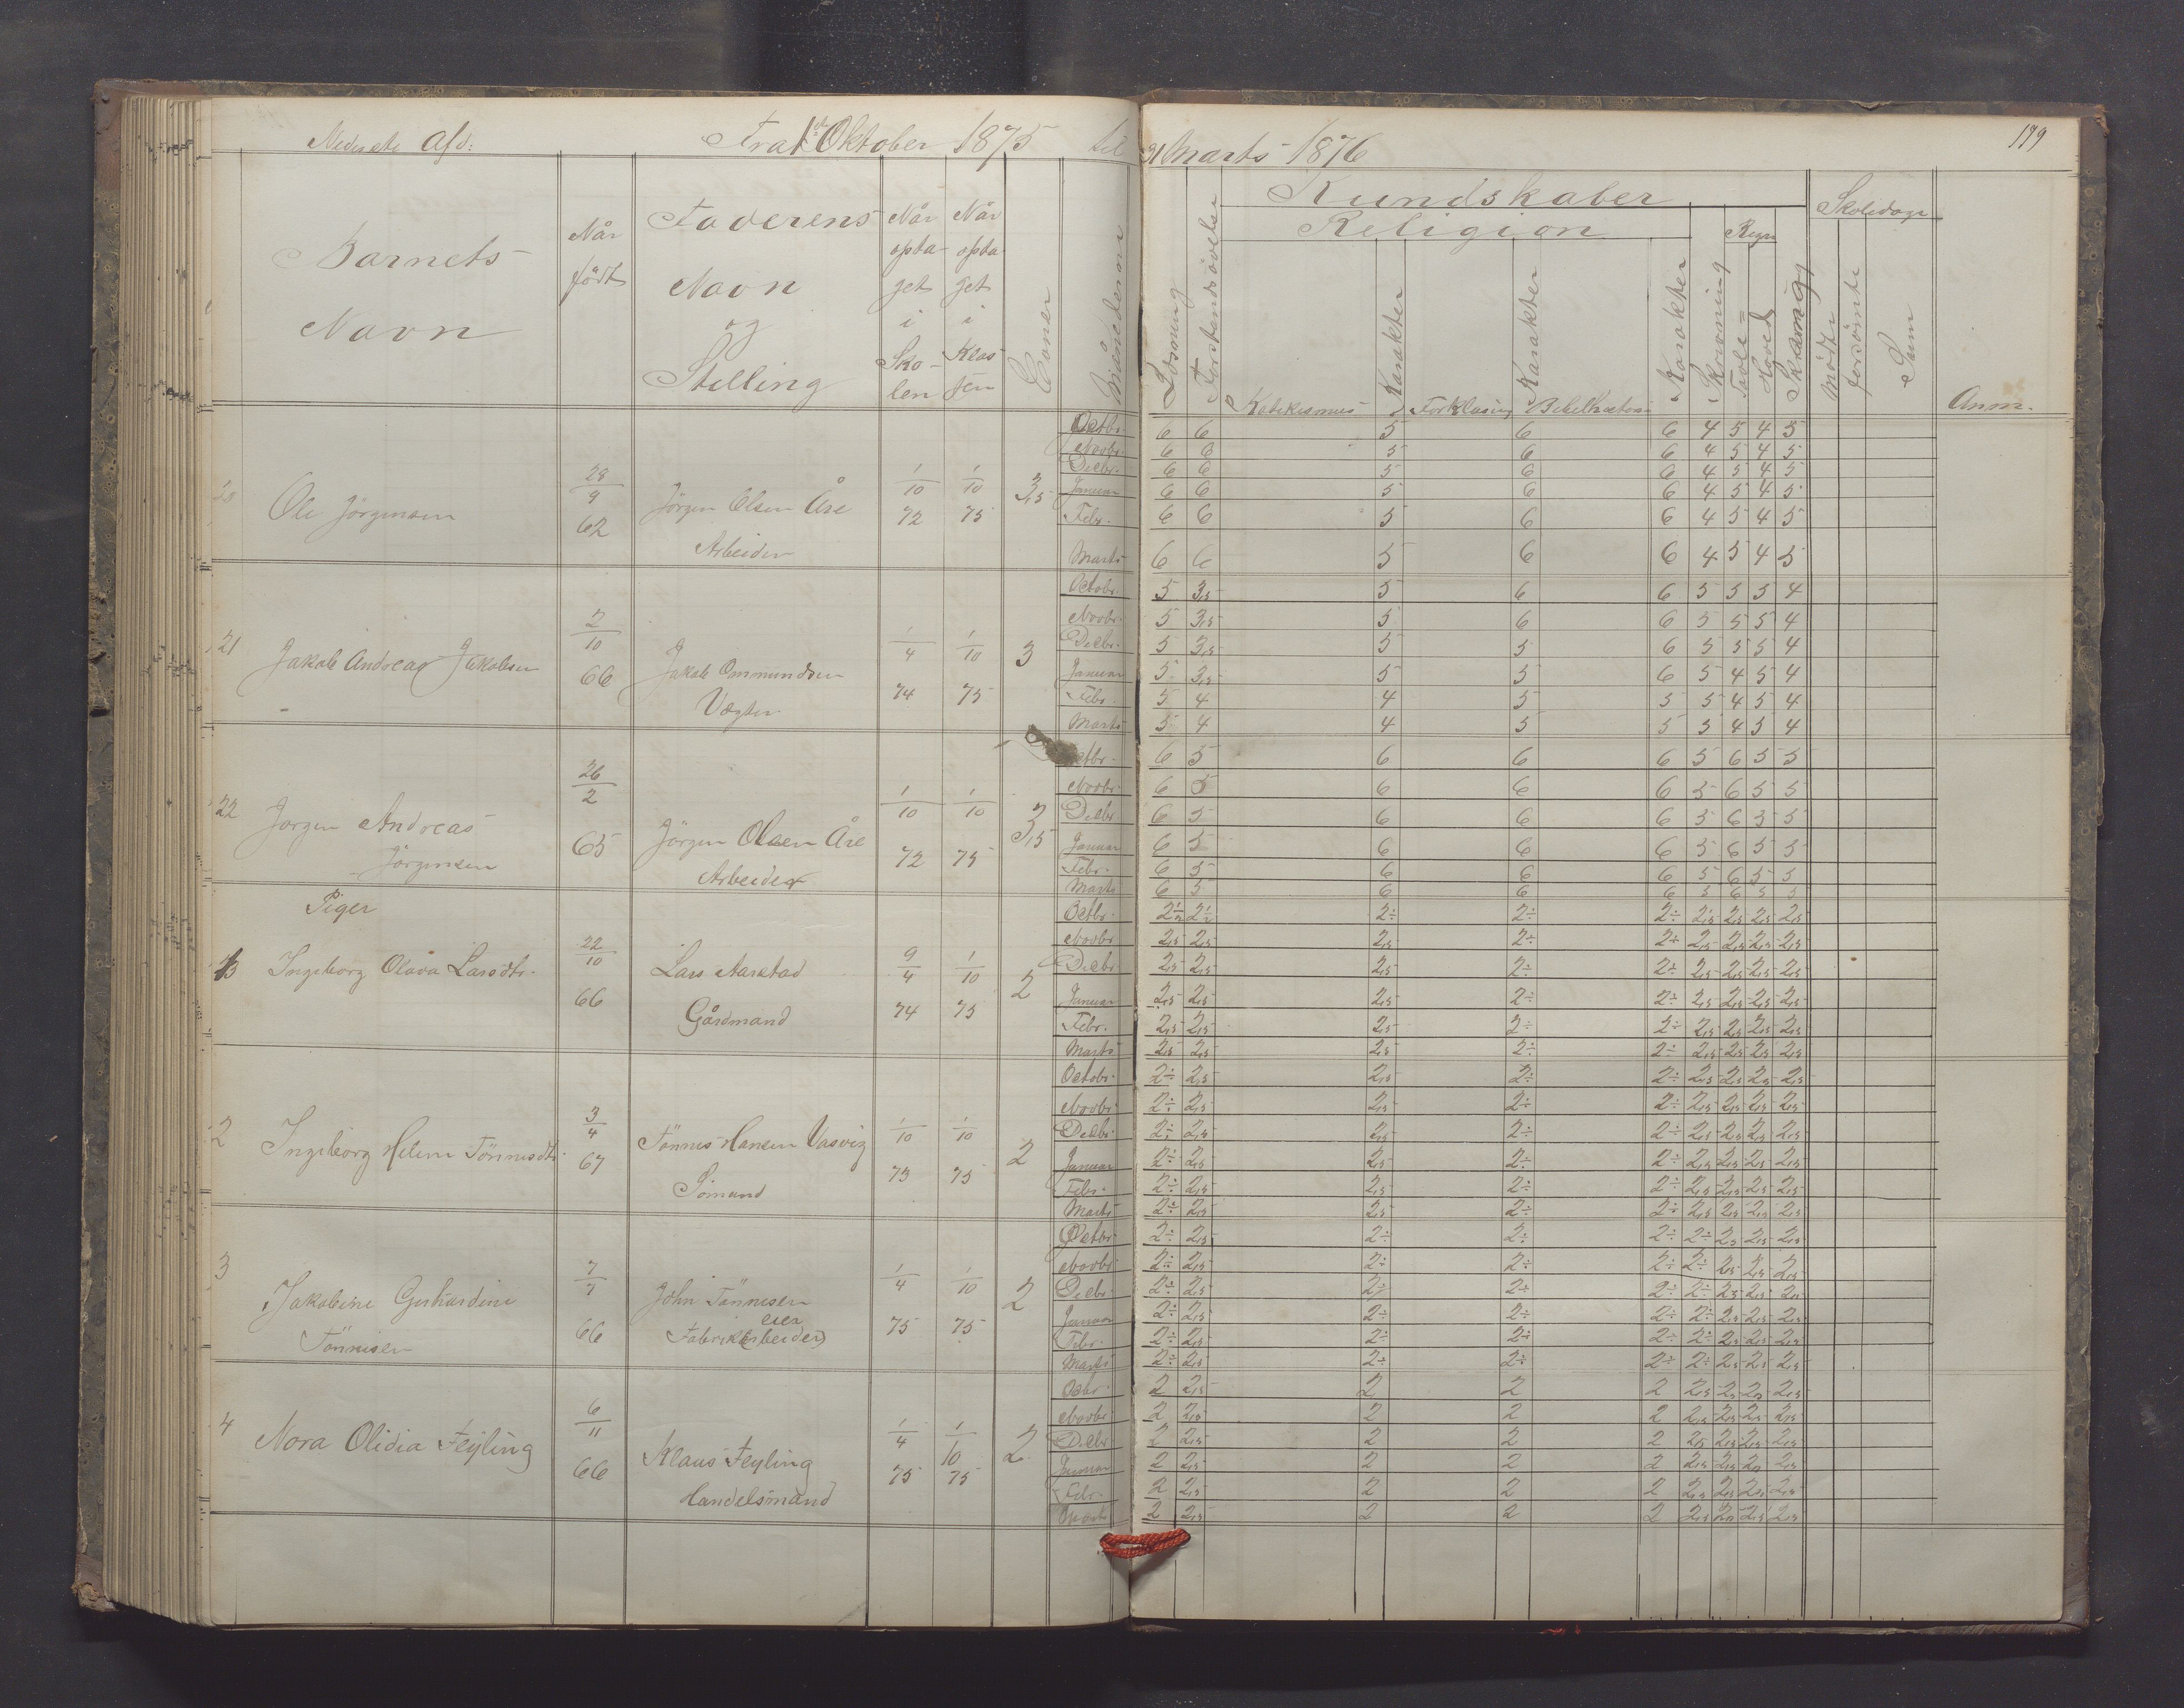 Nederste Afd: Fra 1ste Oktober 1875 til
31 Marts 1876
179
Barnets Navn
Når født
Faderens Navn og Stilling
Når optaget i Skolen
Når optaget i Klassen
Evner
Månederne
Kundskaber
Religion
Læsning
Forstandsøvelse
Katekismus
Karakter
Forklaring
Karakter
Bibelhistorie
Karakter
Skrivning
Regn
Tavle=
Hoved
Skoledage
mødte
forsömte
Sum
Anm.
Ole Jörgensen 28/9 62 Jörgen Olsen Åse Arbeider 1/10 72 1/10 75 3,5
Octbr. 6 6 5 6 6 4 5 4 5
Novbr. 6 6 5 6 6 4 5 4 5
Decbr. 6 6 5 6 6 4 5 4 5
Januar 6 6 5 6 6 4 5 4 5
Febr. 6 6 5 6 6 4 5 4 5
Marts 6 6 5 6 6 4 5 4 5
21 Jakob Andreas Jakobsen 2/10 66 Jakob Ommundsen Vægter 1/4 74 1/10 75 3
Octobr. 5 3,5 5 6 6 5 5 5 4
Novbr. 5 3,5 5 6 6 5 5 5 4
Decbr. 5 3,5 5 5 6 5 5 5 4
Januar 5 3,5 5 5 6 5 4 5 4
Febr. 5 4 4 5 5 5 4 5 4
Marts 5 4 4 5 5 5 4 5 4
22 Jörgen Andreas Jörgensen 26/2 65 Jörgen Olsen Åse Arbeider 1/10 72 1/10 75 3,5
Octbr. 6 5 6 6 6 5 6 5 5
Novbr. 6 5 6 6 6 5 6 5 5
Decbr 6 5 6 6 6 5 6 5 5
Januar 6 5 6 6 6 5 6 5 5
Febr. 6 5 6 6 6 5 6 5 5
Marts 6 5 6 6 6 5 6 5 5
Piger
Ingeborg Olava Larsdtr. 22/10 66 Lars Aarstad Gårdmand 9/4 74 1/10 75 2
Octbr. 2÷ 2÷ 2÷ 2,5 2,5 2,5 2,5
Novbr 2,5 2,5 2,5 2÷ 2÷ 2,5 2,5 2,5 2,5
Decbr 2,5 2,5 2,5 2÷ 2÷ 2,5 2,5 2,5 2,5
Januar 2,5 2,5 2,5 2÷ 2÷ 2,5 2,5 2,5 2,5
Febr. 2,5 2,5 2,5 2÷ 2÷ 2,5 2,5 2,5 2,5
Marts 2,5 2,5 2,5 2÷ 2÷ 2,5 2,5 2,5 2,5
2 Ingeborg Helene Tönnesdtr. 3/4 67 Tönnes Hansen Sömand 1/10 73 1/10 75 2
Octobr. 2÷ 2,5 2,5 2÷ 2÷ 2,5 2,5 2,5 2,5
Novbr. 2÷ 2,5 2,5 2÷ 2÷ 2,5 2,5 2,5 2,5
Decbr. 2÷ 2,5 2,5 2÷ 2÷ 2,5 2,5 2,5 2,5
Januar 2÷ 2,5 2,5 2÷ 2÷ 2,5 2,5 2,5 2,5
Febr. 2÷ 2,5 2,5 2÷ 2÷ 2,5 2,5 2,5 2,5
Marts 2÷ 2,5 2,5 2÷ 2÷ 2,5 2,5 2,5 2,5
3 Jakobine Gerhardine Tönnesen 7/7 66 John Tönnesen Fabrikarbeider eier 1/4 75 1/10 75 2
Octbr. 2÷ 2,5 2÷ 2÷ 2÷ 2÷ 2,5 2,5 2,5
Novbr 2÷ 2,5 2÷ 2÷ 2÷ 2÷ 2,5 2,5 2,5
Decbr. 2÷ 2,5 2÷ 2÷ 2÷ 2÷ 2,5 2,5 2,5
Januar 2÷ 2,5 2÷ 2÷ 2÷ 2÷ 2,5 2,5 2,5
Febr. 2÷ 2,5 2÷ 2÷ 2÷ 2÷ 2,5 2,5 2,5
Marts 2÷ 2,5 2÷ 2÷ 2÷ 2÷ 2,5 2,5 2,5
4 Nora Olidia Fejling 6/11 66 Klaus Fejling Handelsmand 1/4 75 1/10 75 2
Octbr 2 2,5 2 2 2 2,5 2,5 2,5 2,5
Novbr 2 2,5 2 2 2 2,5 2,5 2,5 2,5
Decbr. 2 2,5 2 2 2 2,5 2,5 2,5 2,5
Januar 2 2,5 2 2 2 2,5 2,5 2,5 2,5
Febr. 2 2,5 2 2 2 2,5 2,5 2,5 2,5
Marts 2 2,5 2 2 2 2,5 2,5 2,5 2,5